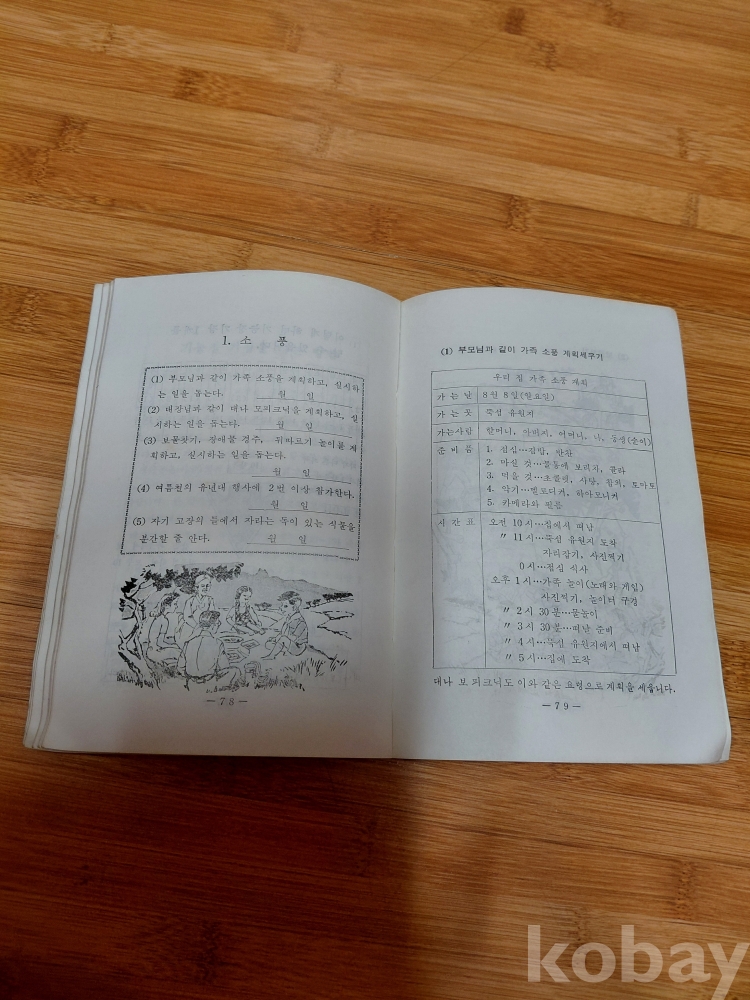 1. 소 풍
(1) 부모님과 같이 가족 소풍을 계획하고, 실시하
는 일을 돕는다. 월 일
(2) 대장님과 같이 대나 모피크닉을 계획하고, 실
시하는 일을 돕는다. 월 일
(3) 보물찾기, 장애물 경주, 뒤따르기 놀이를 계
획하고, 실시하는 일을 돕는다.
월 일
(4) 여름철의 유년대 행사에 2번 이상 참가한다.
월 일
(5) 자기 고장의 들에서 자라는 독이 있는 식물을
분간할 줄 안다. 월 일
— 78 —
(1) 부모님과 같이 가족 소풍 계획세우기
우리 집 가족 소풍 계획
가 는 날 8월 8일(일요일)
가 는 곳 뚝섬 유원지
가는사람 할머니, 아버지, 어머니, 나, 동생(순이)
준 비 물 1. 점심…김밥, 반찬
2. 마실 것…물통에 보리차, 콜라
3. 먹을 것…초콜렛, 사탕, 참외, 토마도
4. 악기…멜로디커, 하아모니커
5. 카메라와 필름
시 간 표 오전 10시…집에서 떠남
〃 11시…뚝섬 유원지 도착
자리잡기, 사진찍기
0시…점심 식사
오후 1시…가족 놀이(노래와 게임)
사진찍기, 놀이터 구경
〃 2시 30분…물놀이
〃 3시 30분…떠날 준비
〃 4시…뚝섬 유원지에서 떠남
〃 5시…집에 도착
대나 보 피크닉도 이와 같은 요령으로 계획을 세웁니다.
— 79 —
kobay